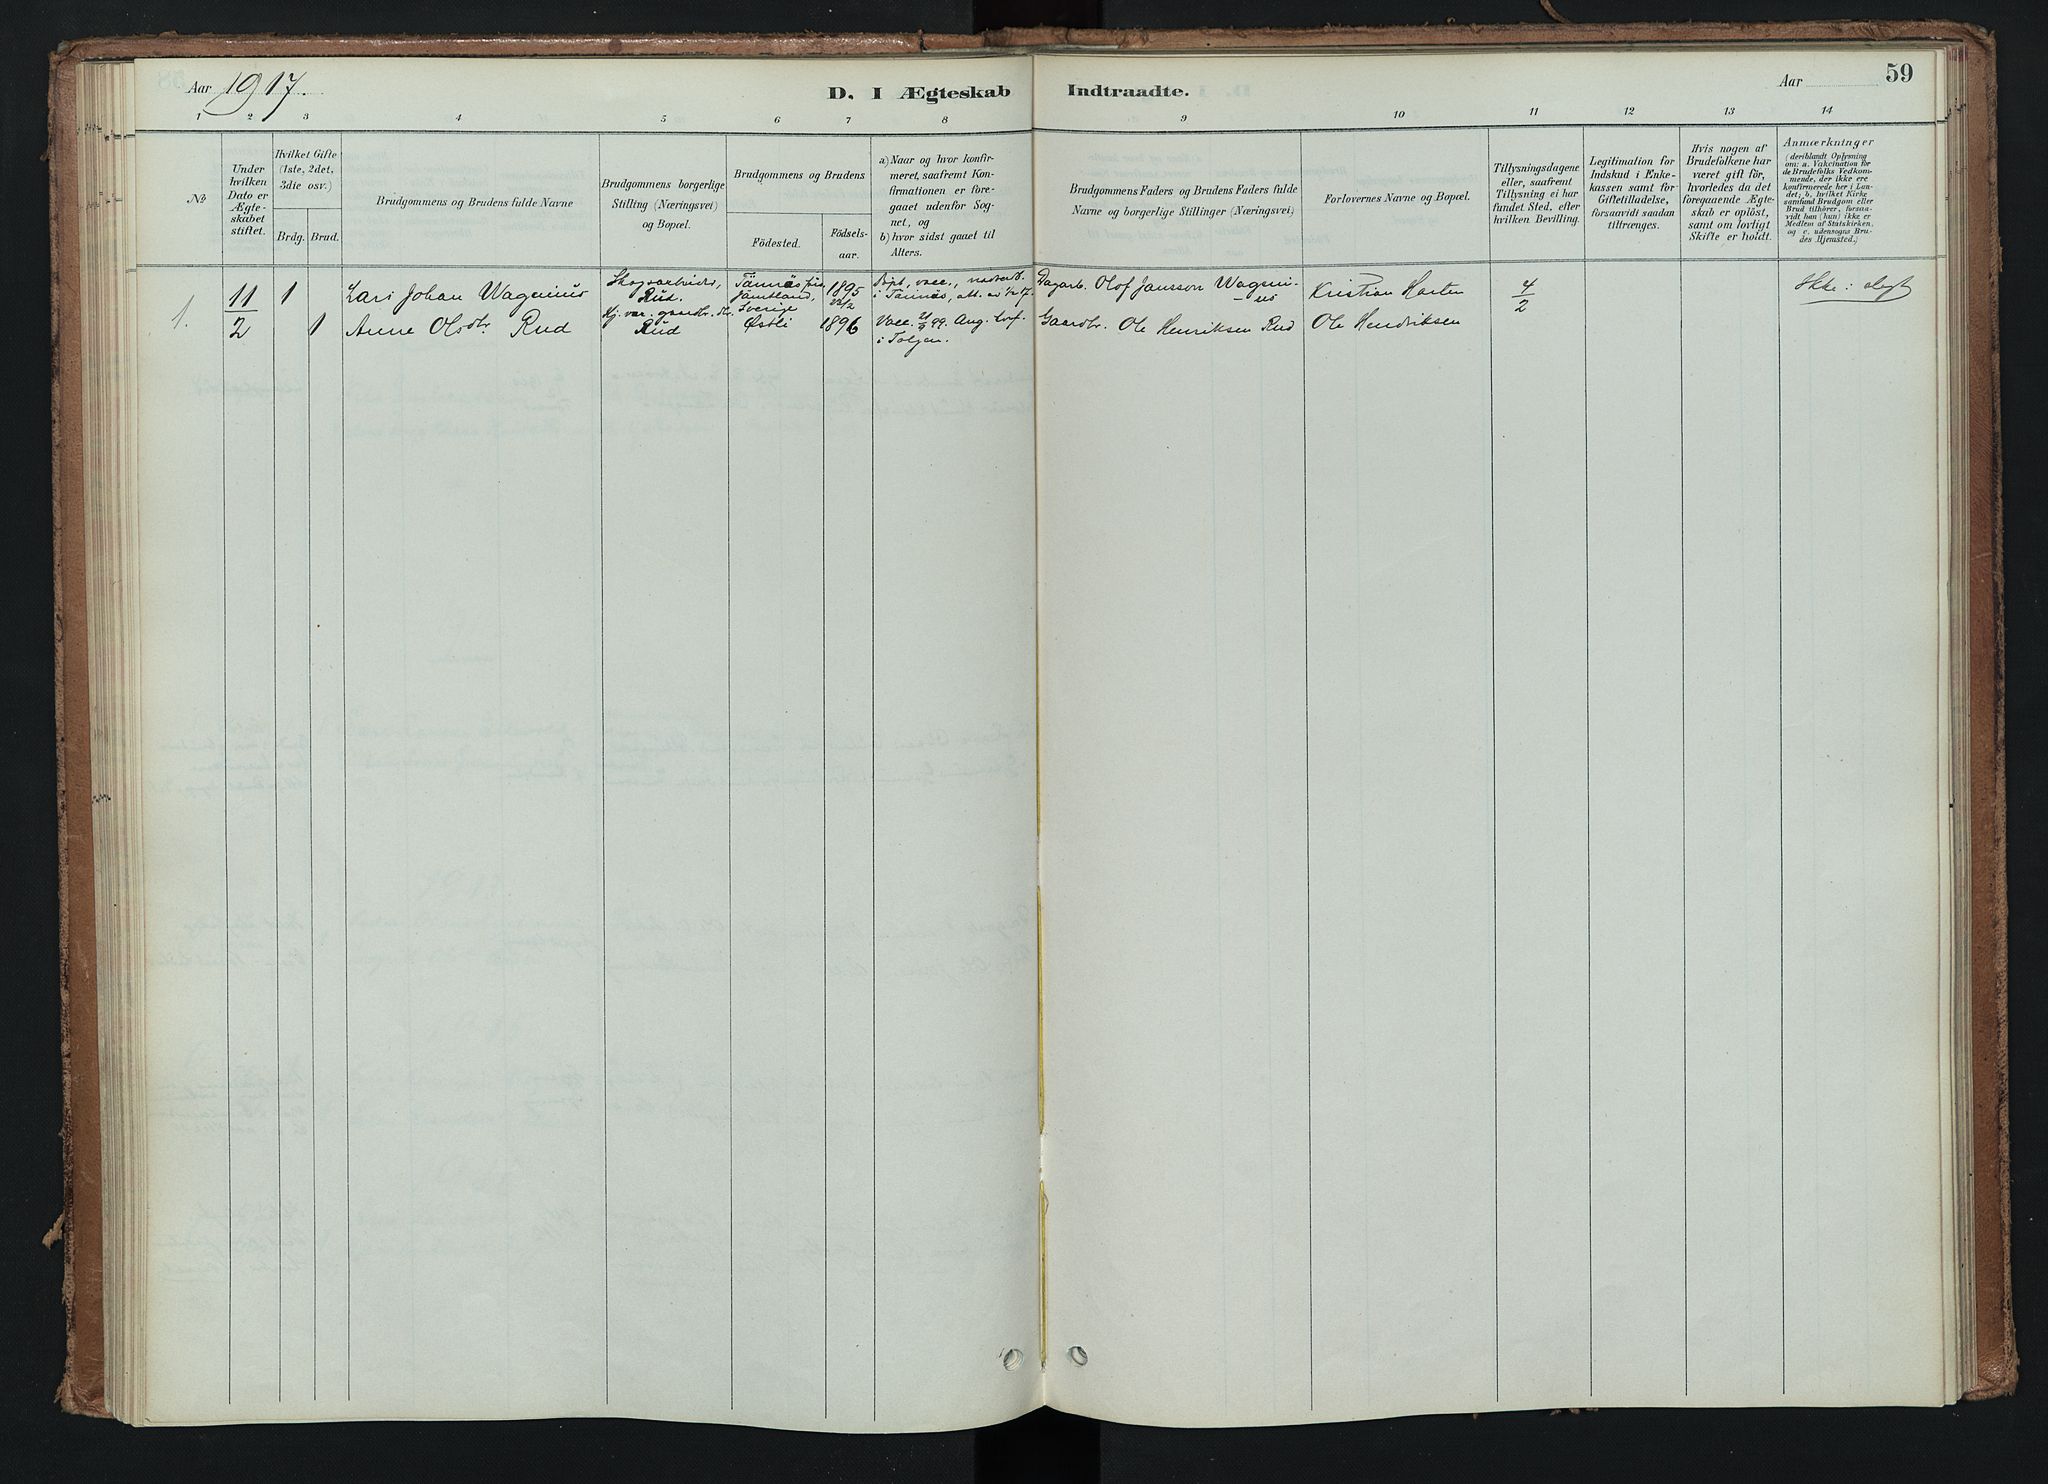 Aar 1917.
D. I Ægteskab Indtraadte.
Aar 59
1 2 3 4 5 6 7 8 9 10 11 12 13 14
No
Under hvilken Dato er Ægteskabet stiftet.
Hvilket Gifte (1ste, 2det, 3die osv.)
Brdg. Brud.
Brudgommens og Brudens fulde Navne
Brudgommens borgerlige Stilling (Næringsvei) og Bopæl.
Brudgommens og Brudens
Födested. Födsels-aar.
a) Naar og hvor konfirmeret, saafremt Konfirmationen er foregaaet udenfor Sognet, og
b) hvor sidst gaaet til Alters.
Brudgommens Faders og Brudens Faders fulde Navne og borgerlige Stillinger (Næringsvei)
Forlovernes Navne og Bopæl.
Tillysningsdagene eller, saafremt Tillysning ei har fundet Sted, efter hvilken Bevilling.
Legitimation for Indskud i Enkekassen samt for Giftetilladelse, forsaavidt saadan tiltrænges.
Hvis nogen af Brudefolkene har været gift för, hvorledes da det foregaaende Ægteskab er oplöst, samt om lovligt Skifte er holdt.
Anmærkninger
(deriblandt Oplysning om: a. Vakcination for de Brudefolks Vedkommende, der ikke ere konfirmerede her i Landet; b. hvilket Kirkesamfund Brudgom eller Brud tilhörer, forsaavidt han (hun) ikke er Medlem af Statskirken, og c. udensogns Brudes Hjemsted.)
1. 11/2 1 Lars Johan Wagenius Skogsarbeider, Rud. Tännäs Jämtland, Sverige 1895 Døpt, vacc., i Tännäs, att. Dagarb. Olof Jansson Wagenius Kristian Horten 4/2 Ikke i slegt
1 Anne Olsdtr. Rud Hj. vær. gaardbr. dtr. Rud Østli 1896 Vacc. 99. Aug. konf. i Tolgen. Gaardbr. Ole Henriksen Rud Ole Hendriksen